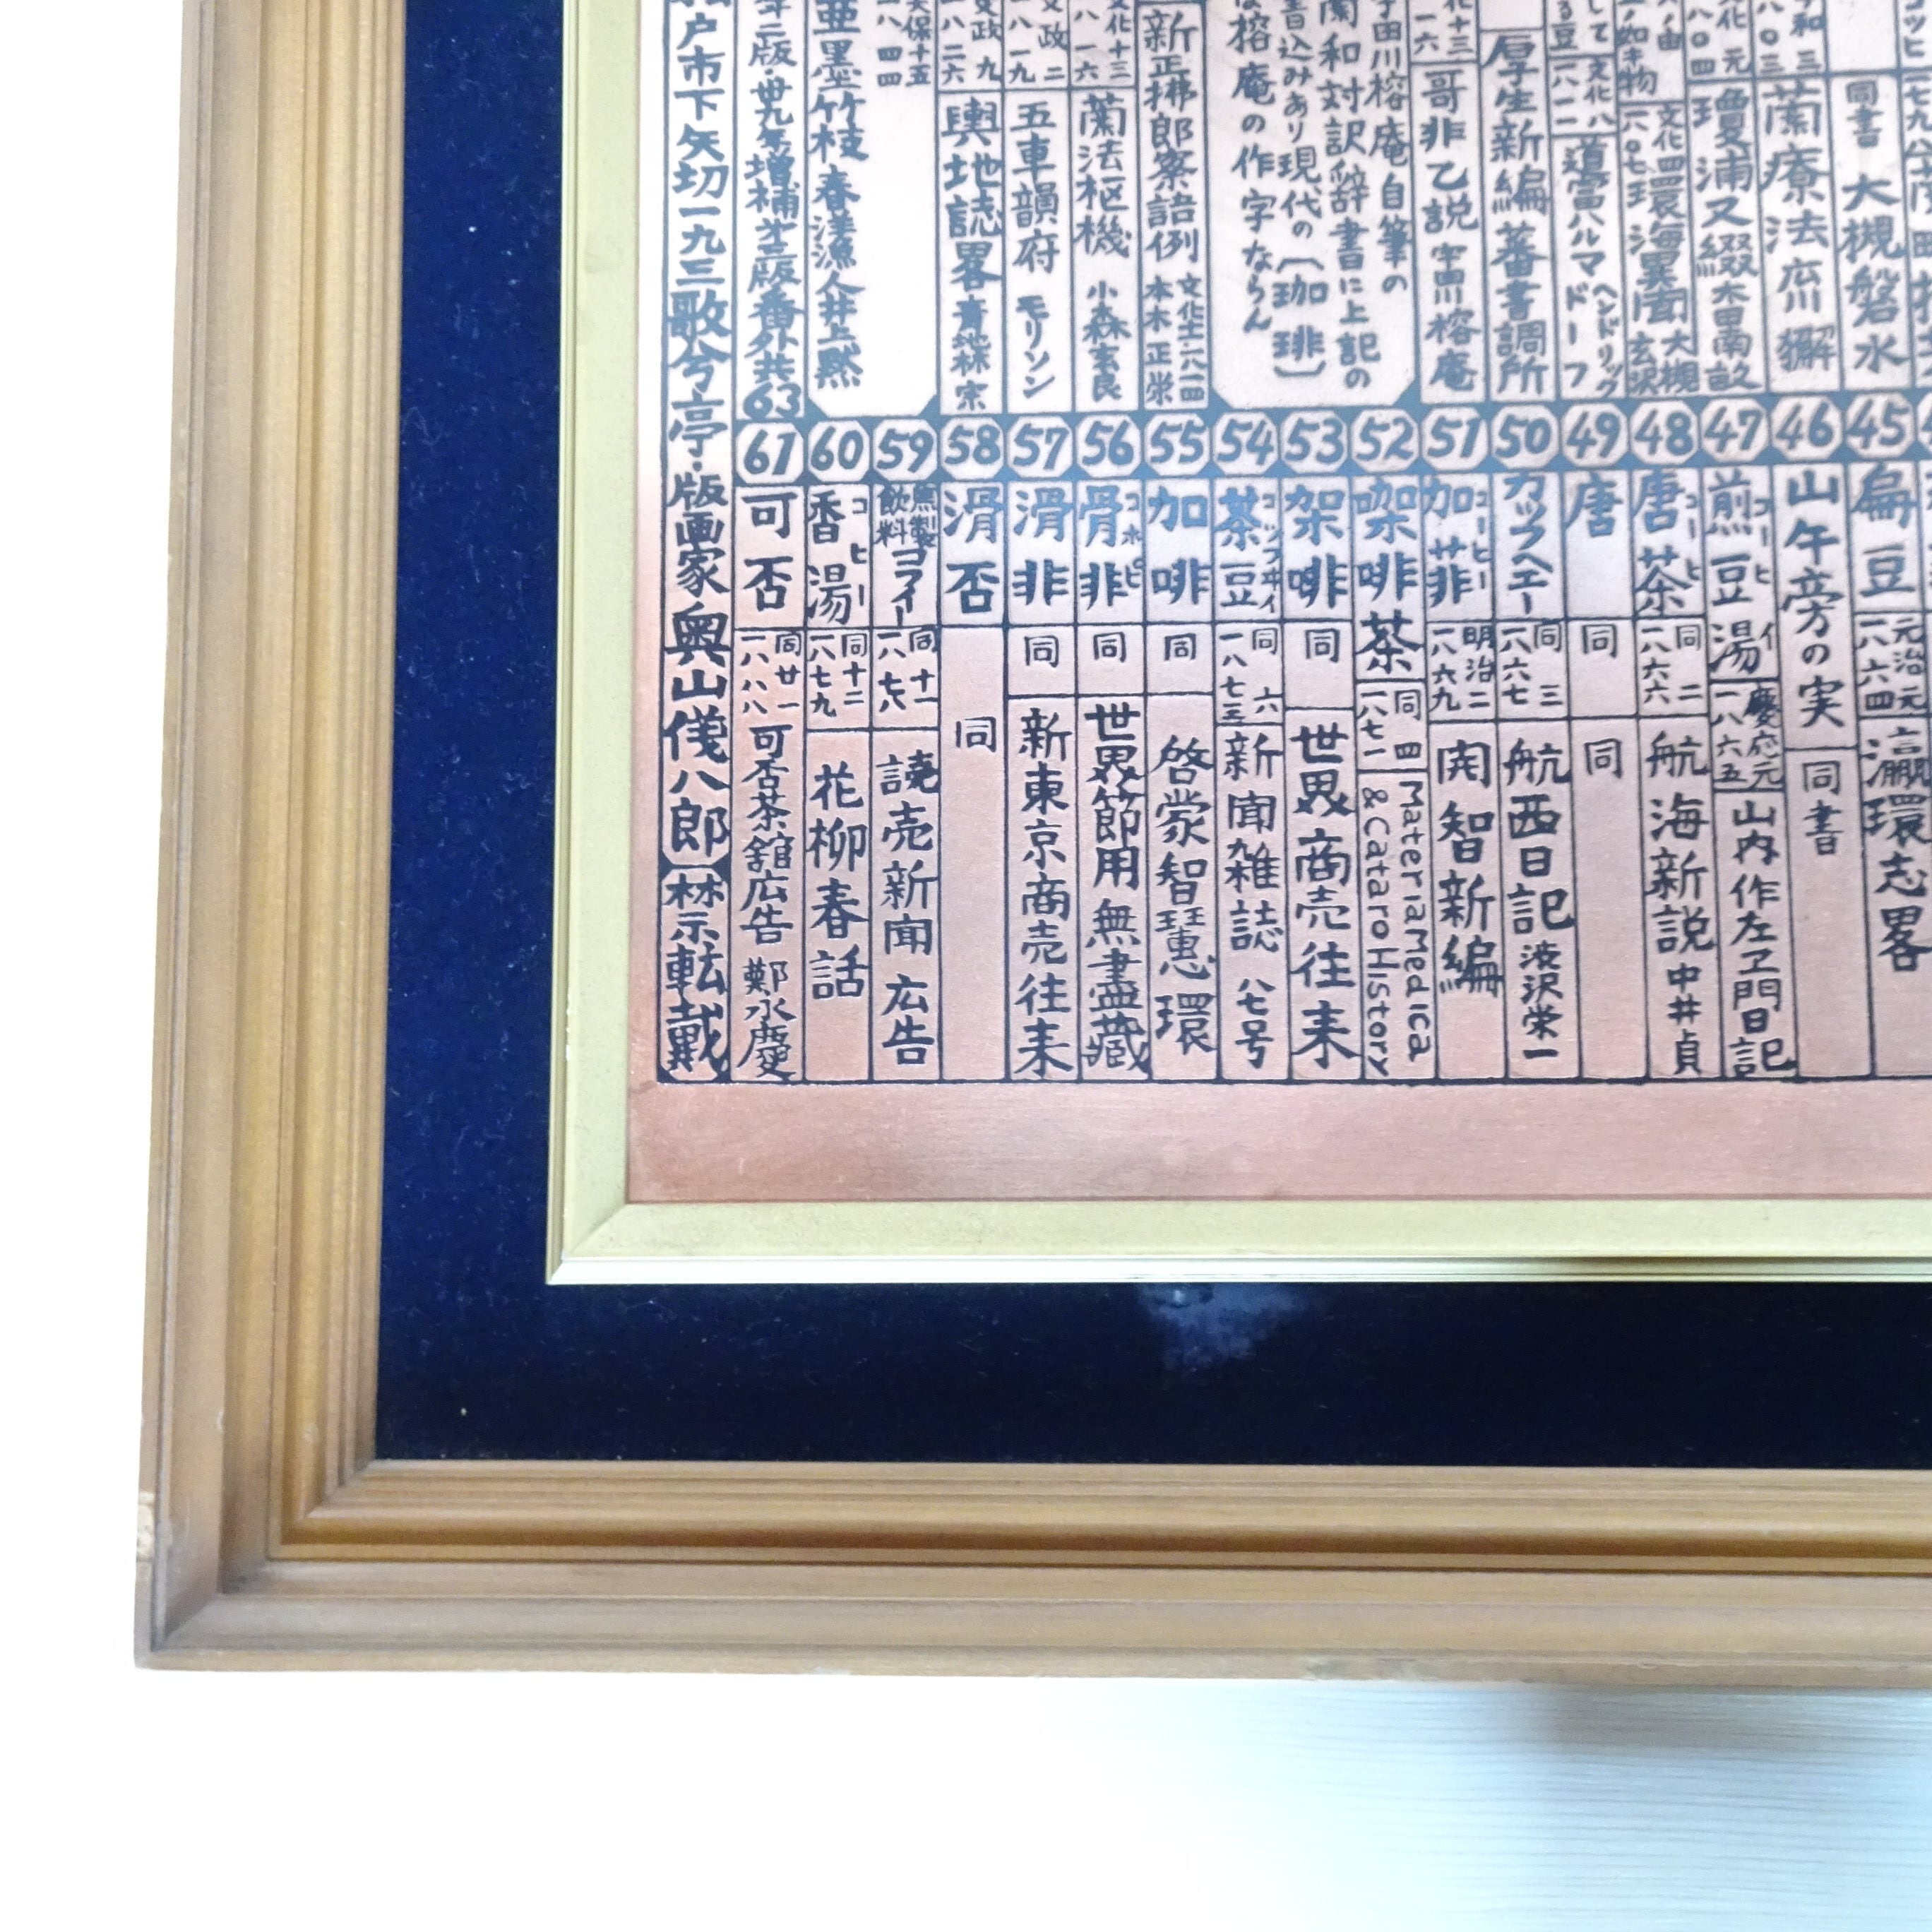 同書 大槻磐水
蘭療法 広川獬
瓊浦又綴 大田南畝
環海異聞 大槻玄沢
道富ハルマ ヘンドリックドーフ
厚生新編 蕃書調所
哥非乙説 宇田川榕庵
宇田川榕庵自筆の
蘭和対訳辞書に上記の
書込みあり現代の〔珈琲〕
は榕庵の作字ならん
新正拂郎察語例 文化十一 一八一四 本木正栄
蘭法枢機 小森玄良
五車韻府 モリソン
輿地誌畧 青地林宗
亜墨竹枝 春漾漁人井上黙
版・丗九年増補
版番外共63
45 扁豆 元治元 一八六四 瀛環志畧
46 山午旁の実 同書
47 煎豆湯 慶応元 一八六五 山内作左ヱ門日記
48 唐茶 同二 一八六六 航海新説 中井貞
49 唐 同 同
50 カッフヘエー 同三 一八六七 航西日記 渋沢栄一
51 加菲 コーヒー 明治二 一八六九 開智新編
52 咖啡茶 同四 一八七一 Materia Medica & Cataro History
53 架啡 同 世界商売往来
54 茶豆 コッフヰイ 同六 一八七三 新聞雑誌 八七号
55 加啡 同 啓蒙智慧環
56 骨非 コホピ 同 世界節用無盡蔵
57 滑非 同 新東京商売往来
58 滑否 同
59 焦製飲料 コフイー 同十一 一八七八 読売新聞広告
60 香湯 コヒー 同十二 一八七九 花柳春話
61 可否 同廿一 一八八八 可否茶館広告 鄭永慶
戸市下矢切一九三歌兮亭・版画家 奥山儀八郎 禁示転載